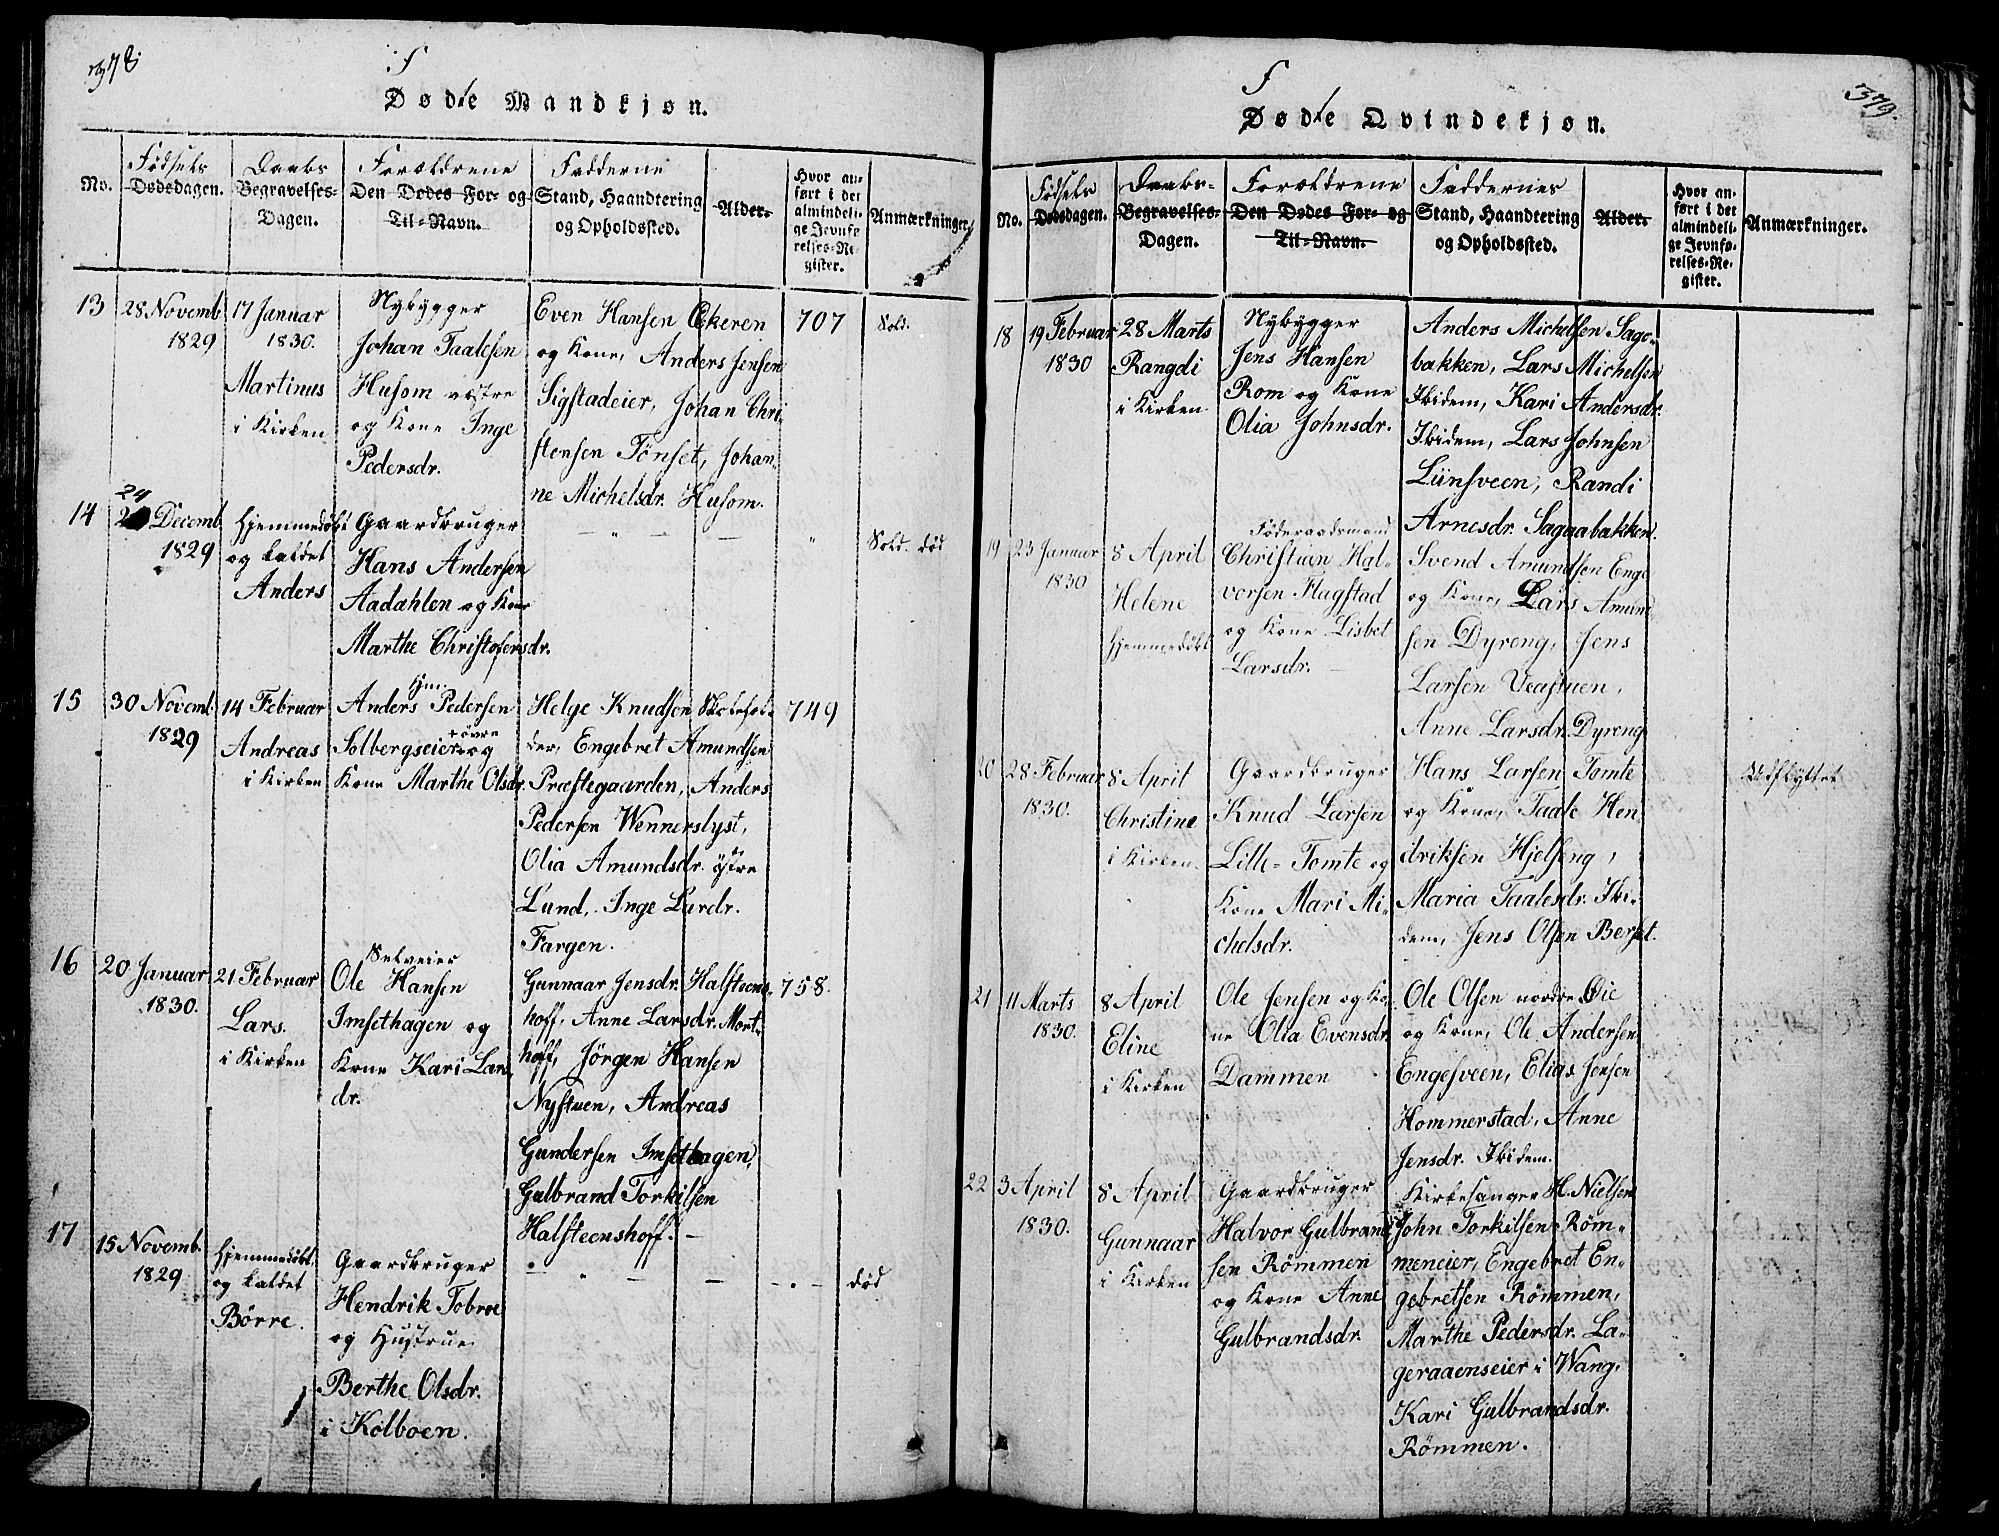 378.
Født
Døde Mandkjøn.
No.
Fødsels
Dødsdagen.
Daabs
Begravelses-
Dagen.
Forældrene
Den Dødes For- og
Til-Navn.
Fadderne
Stand, Haandtering
og Opholdssted.
Alder.
Hvor an-
ført i det
almindeli-
ge Jevnfø-
relses-Re-
gister.
Anmærkninger.
13
28 Novemb.
1829
17 Januar
1830.
Martinus
i Kirken
Nybygger
Johan Taalesen
Husom vestre
og Kone Inge
Pedersdr.
Even Hansen Ekeren
og Kone, Anders Jensen
Sigstadeier, Johan Chri-
stensen Tønset, Johan-
ne Michelsdr. Husom.
707
Sold.
14
24
Decemb.
1829
hjemmedøbt
og kaldet
Anders
Gaardbruger
Hans Andersen
Aadahlen og Kone
Marthe Christofersdr.
— " — —
"
Sold. død
15
30 Novemb.
1829
14 Februar
Andreas
i Kirken
Hm.
Anders Pedersen
+ øvre
Solbergseier og
Kone Marthe Olsdr.
Helge Knudsen Skolehol-
der, Engebret Amundsen
Præstegaarden, Anders
Pedersen Wennerslyst,
Olia Amundsdr. østre
Lund, Inge Lardr.
Fargen.
749
16
20 Januar
1830.
21 Februar
Lars.
i Kirken
Selveier
Ole Hansen
Imsethagen og
Kone Kari Lars
dr.
Gunnaar Jensdr. Halsteens-
hoff, Anne Larsdr. Mort-
hoff, Jørgen Hansen
Nystuen, Andreas
Gundersen Imsethagen,
Gulbrand Torkilsen
Halsteenshoff. —
758.
17
15 Novemb.
1829
hjemmedøbt
og kaldet
Børre.
Gaardbruger
Hendrik Tobroe
og Hustrue
Berthe Olsdr.
i Kolboen.
— " — — " —
død
379.
Født
Døde Qvindekjøn.
No.
Fødsels
Dødsdagen.
Daabs-
Begravelses-
Dagen.
Forældrene
Den Dødes For- og
Til-Navn.
Faddernes
Stand, Haandtering
og Opholdssted.
Alder.
Hvor an-
ført i det
almindeli-
ge Jevnfø-
relses-Re-
gister.
Anmærkninger.
18
19 Februar
1830
28 Marts
Rangdi
i Kirken
Nybygger
Jens Hansen
Rom og Kone
Olia Johnsdr.
Anders Michelsen Sage-
bakken, Lars Michelsen
Ibidem, Kari Andersdr.
Ibidem, Lars Johnsen
Liinsveen, Randi
Arnesdr. Sagaabakken.
19
23 Januar
1830
8 April
Helene
hjemmedøbt
Føderaadsmand
Christian Hal-
vorsen Flagstad
og Kone Lisbet
Larsdr.
Svend Amundsen Enge
og Kone, Lars Amund
sen Dyreng, Jens
Larsen Veastuen,
Anne Larsdr. Dyreng
20
28 Februar
1830.
8 April
Christine
i Kirken.
Gaardbruger
Knud Larsen
Lille-Tomte og
Kone Mari Mi-
chelsdr.
Hans Larsen Tomte
og Kone, Taale Hen
driksen Hjelseng,
Maria Taalesdr. Ibi-
dem, Jens Olsen Berset.
Udflyttet
21
11 Marts
1830.
8 April
Eline
i Kirken
Ole Jensen og Ko-
ne Olia Evensdr.
Dammen
Ole Olsen nordre Øie
og Kone, Ole Andersen
Engesveen, Elias Jensen
Hommerstad, Anne
Jensdr. Ibidem.
22
3 April
1830.
8 April
Gunnaar
i Kirken
Gaardbruger
Halvor Gulbrand
sen Rømmen
og Kone Anne
Gulbrandsdr.
Kirkesanger H. Nielsen
John Torkilsen Røm-
meneier, Engebret En-
gebretsen Rømmen,
Marthe Pedersdr. La-
geraaenseier i Wang,
Kari Gulbrandsdr.
Rømmen.